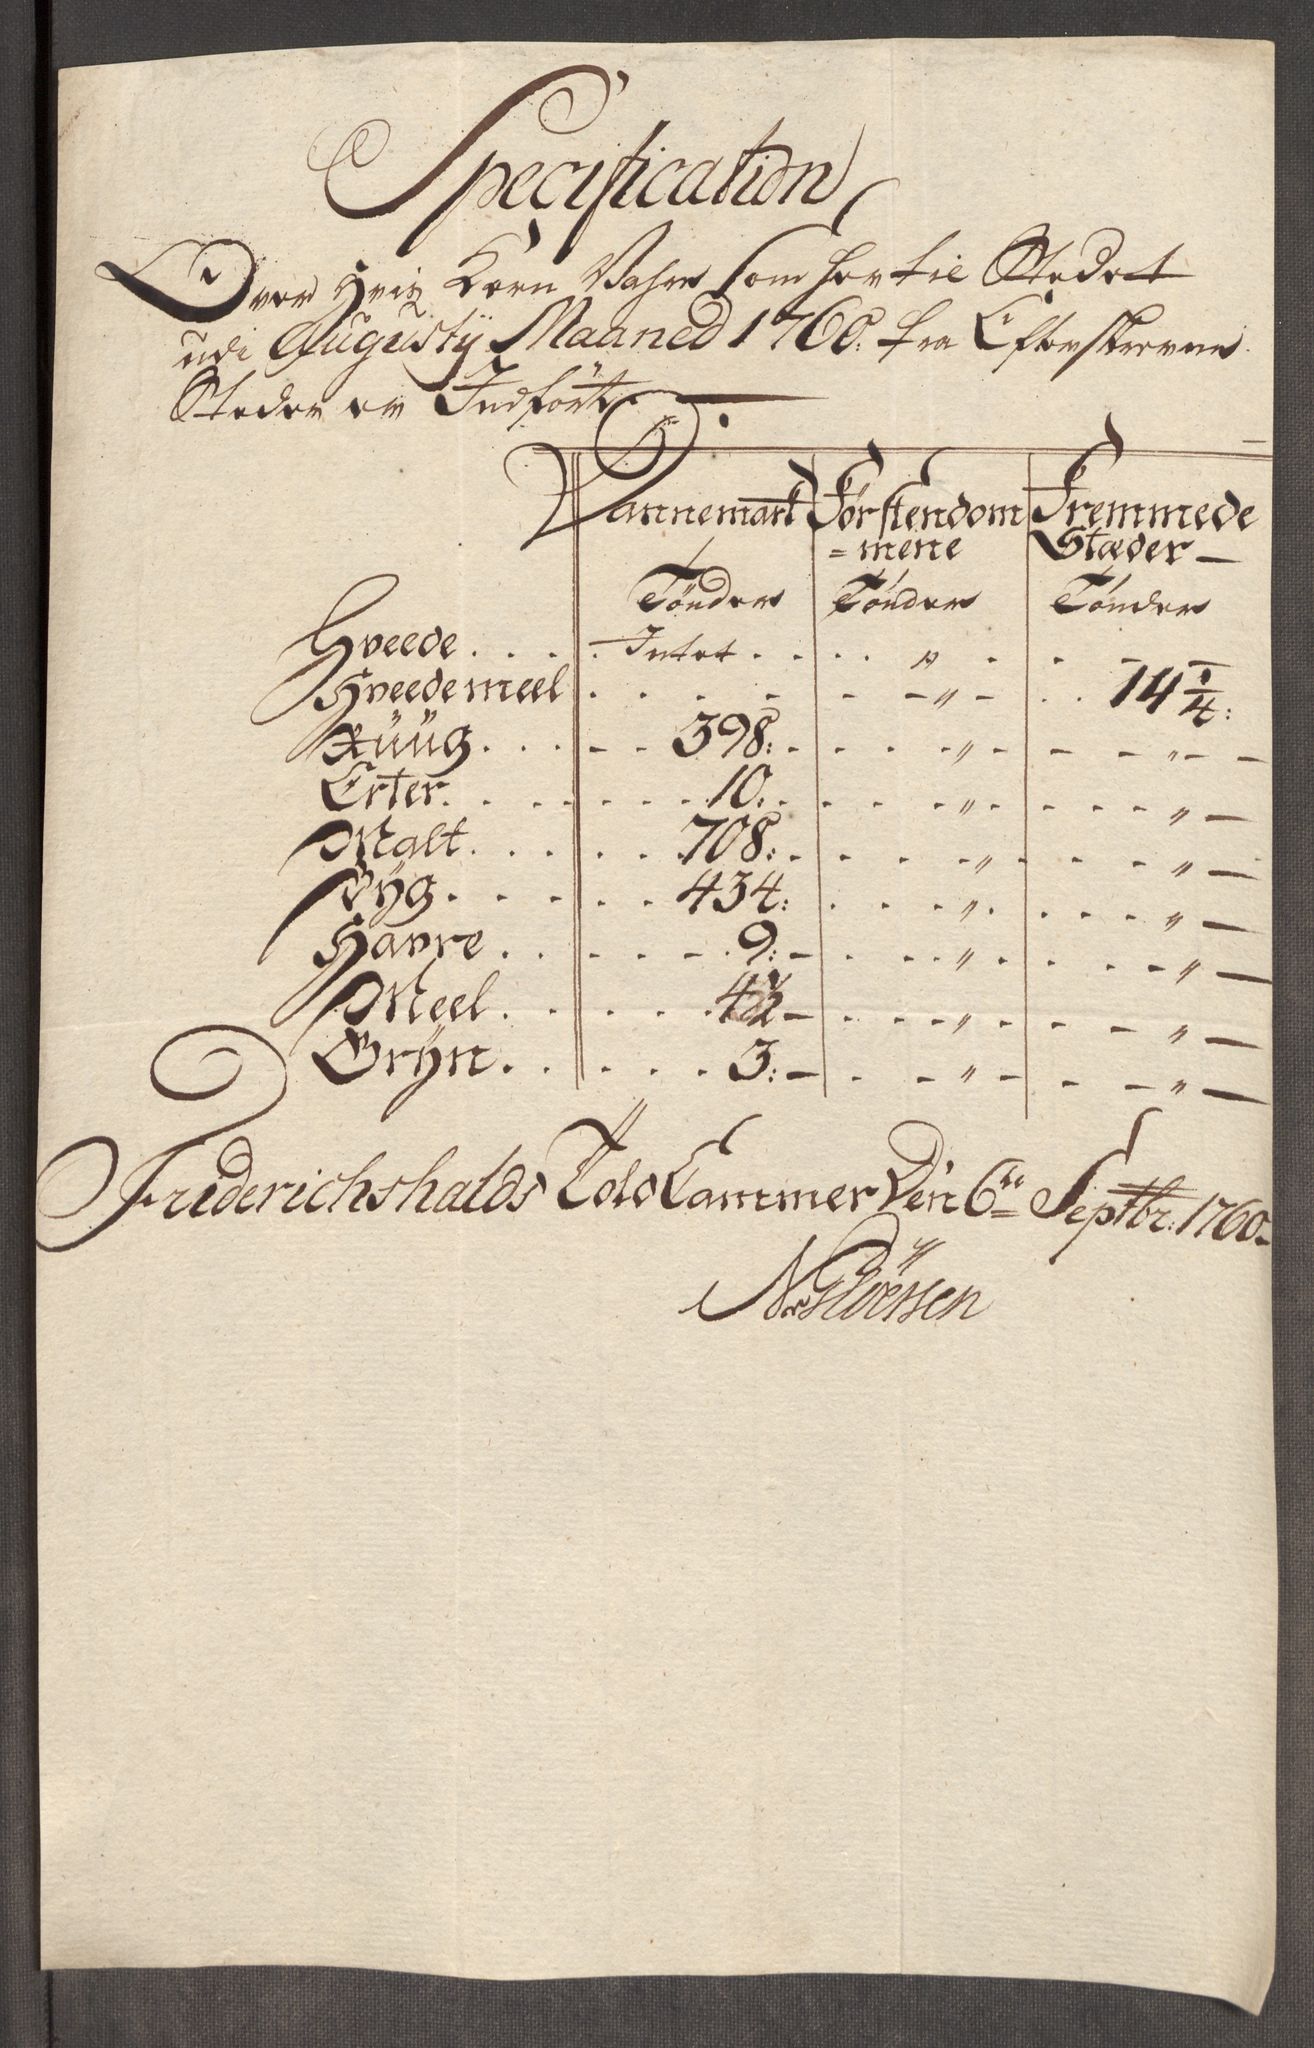 Specification
Over Hvis Korn Vahre som her til Stædet
udi Augustÿ Maaned 1760. fra Efterskrevne
Steder er Indført.
Dannemark Førstendom Fremmede
=mene Stæder —
Tönder Tönder Tönder
Hveede . . . . . Intet . . . . " . . - -
Hveedemeel . . . . - - - " - . . 14 1/4:
Rüüg . . . . - - 398: . . . . " - - - " - -
Erter . . . . . . . . 10: . . . . " . . - - - " -
Malt . . . . . . 708: . . - - " - - - " -
Byg . . . . . . 434: . . . - " . . . - - " -
Havre . . . - - - - 9: - . . - - " . . . - - " -
Meel . . . . . . 4½ - . . - - " - . . - - " -
Grÿn . . . . . . 3: - . - " - - - " -
Friderichshalds Told Cammer Den 6te Septbr: 1760-